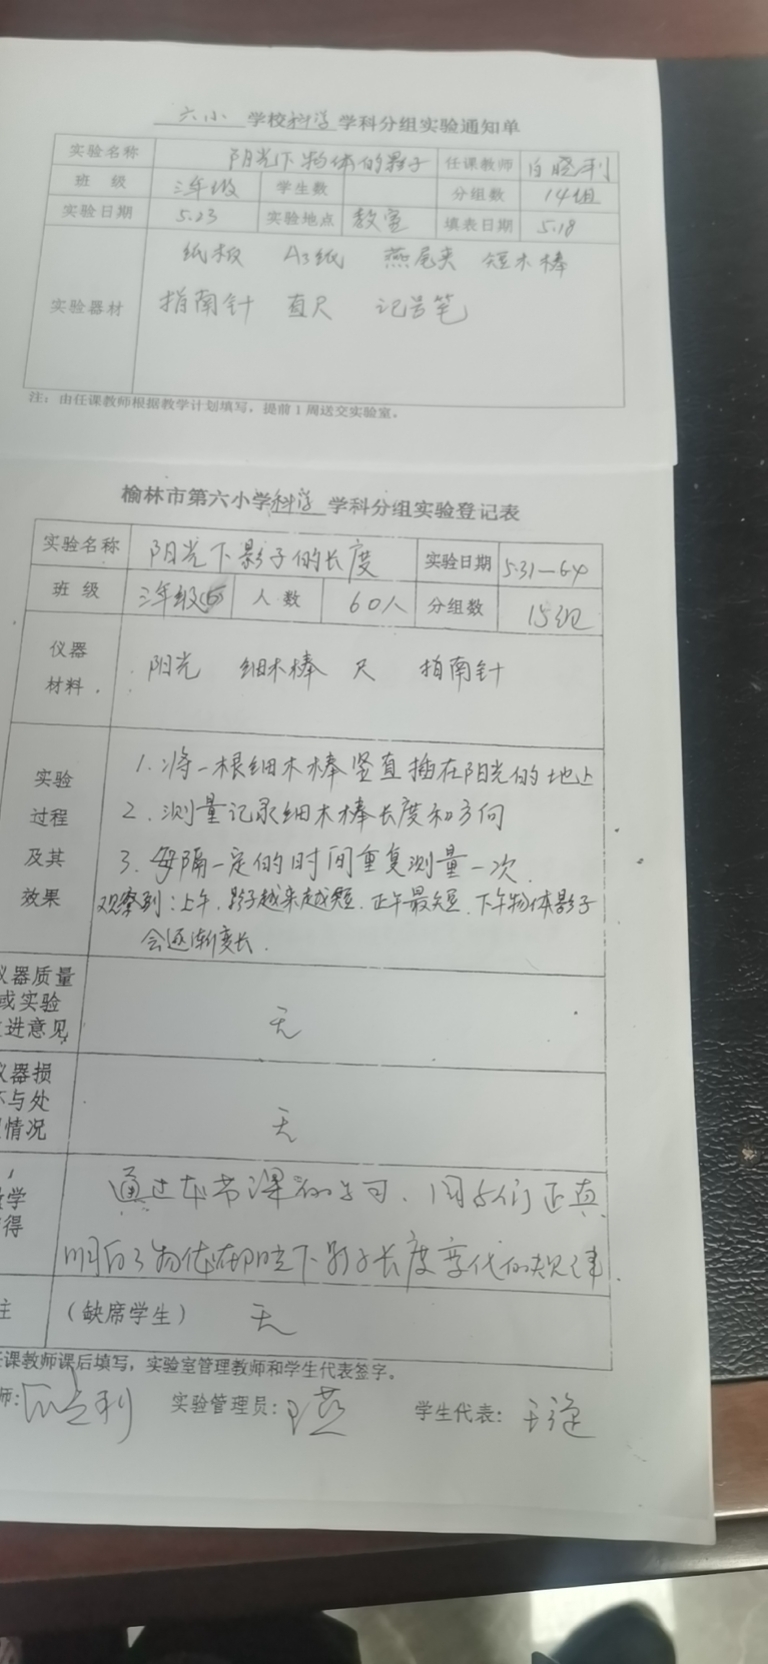 六小 学校科学学科分组实验通知单
实验名称 阳光下物体的影子 任课教师 白晓利
班 级 三年级 学生数 分组数 14组
实验日期 5.23 实验地点 教室 填表日期 5.18
纸板 A3纸 燕尾夹 短木棒
实验器材 指南针 直尺 记号笔
注：由任课教师根据教学计划填写，提前1周送交实验室。
榆林市第六小学科学 学科分组实验登记表
实验名称 阳光下影子的长度 实验日期 5.31—6.4
班 级 三年级 人 数 60人 分组数 15组
仪器
材料 阳光 细木棒 尺 指南针
实验 1.将一根细木棒竖直插在阳光的地上
过程 2.测量记录细木棒长度和方向
及其 3.每隔一定的时间重复测量一次.
效果 观察到：上午.影子越来越短.正午最短.下午物体影子
会逐渐变长.
仪器质量
或实验 无
进意见
仪器损
与处 无
情况
通过本节课的学习、同学们正真
学
得 明白了物体在阳光下影子长度变化的规律.
注 （缺席学生） 无
任课教师课后填写，实验室管理教师和学生代表签字。
师: 实验管理员: 学生代表: